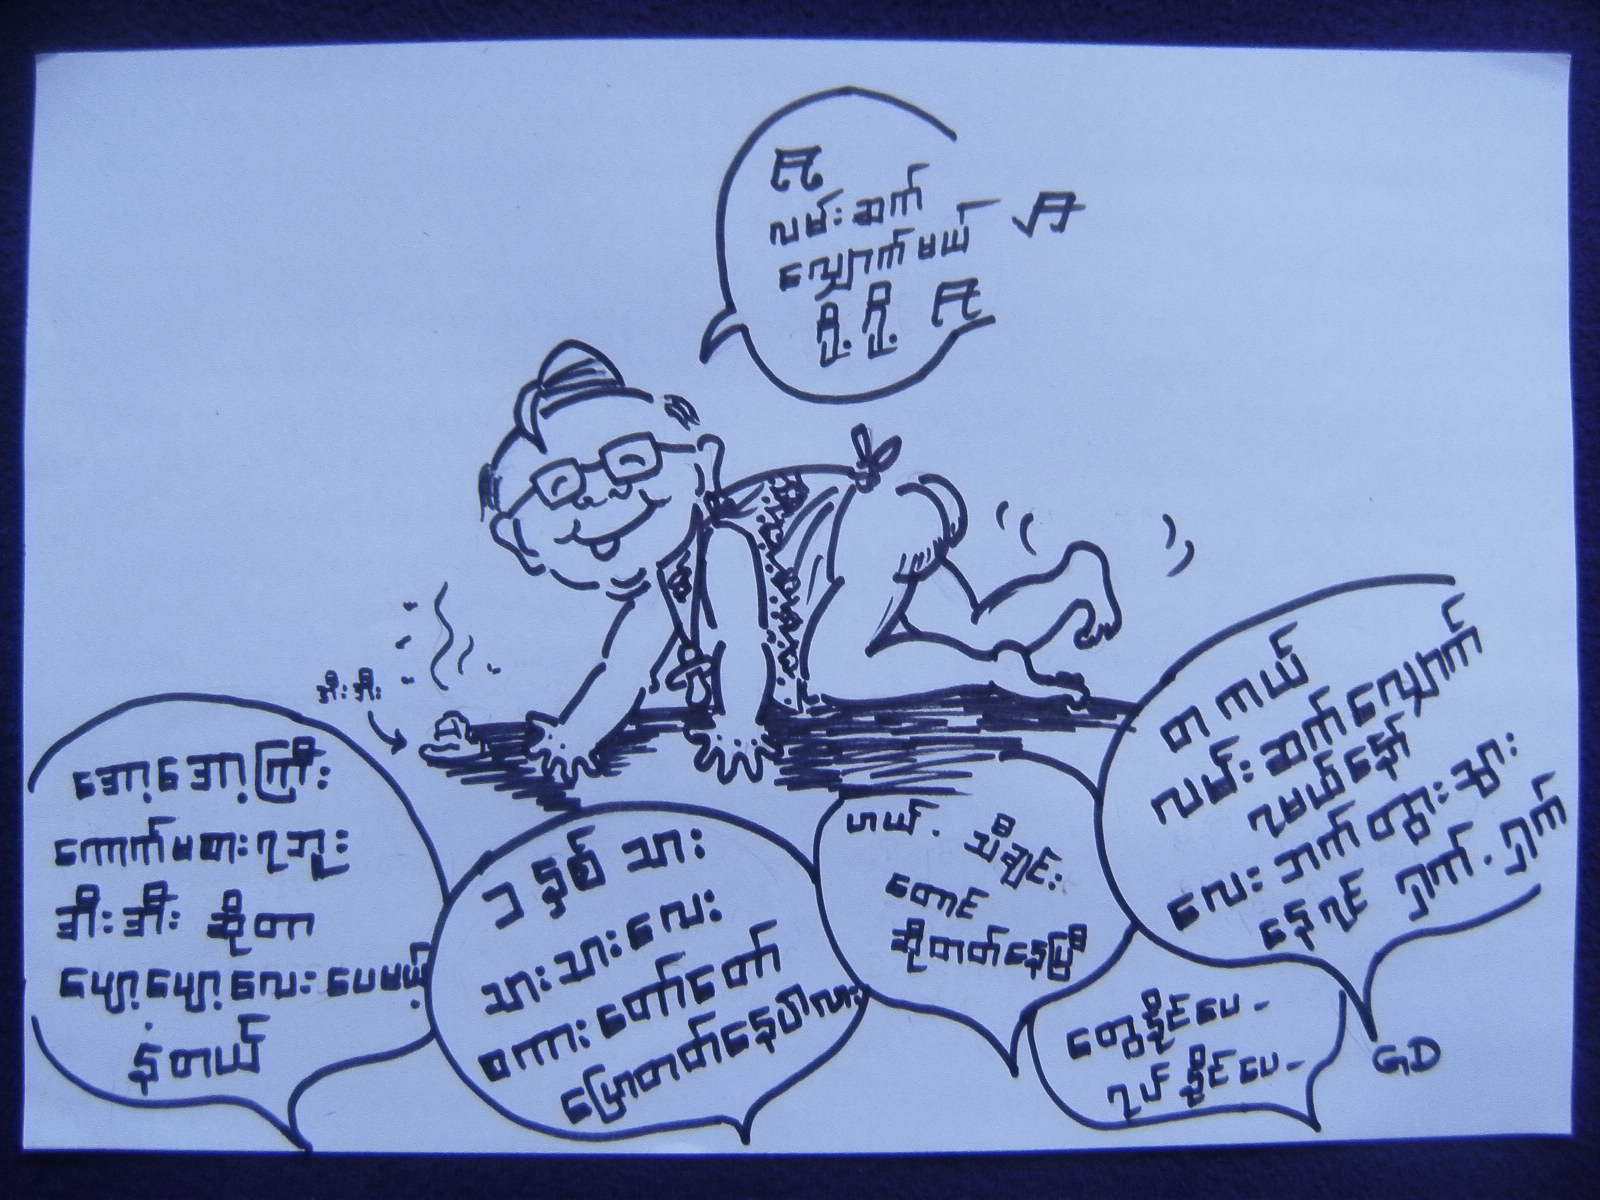 လမ်းဆက်
လျှောက်မယ်
ဗို့ ဗို့
အီးအီး
အော့အော့ကြီး
ကောက်မစားရဘူး
အီးအီး ဆိုတာ
ပျော့ပျော့လေးပေမယ့်
နံတယ်
၁ နှစ် သား
သားသားလေး
စကားတော်တော်
ပြောတတ်နေပါလား
ဟယ်. သီချင်း
တောင်
ဆိုတတ်နေပြီ
တကယ်
လမ်းဆက်လျှောက်
ရမယ်နော်
လေးဘက် ထွားသွား
နေရင် ရှက်. ရှက်
တွေနိုင်ပေ-
ရပ်နိုင်ပေ-
GD